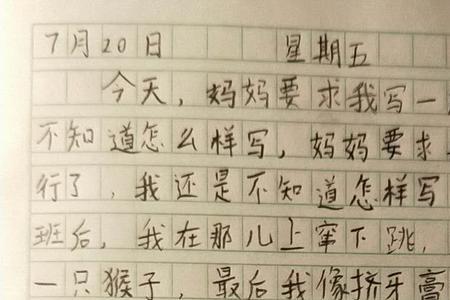 7月20日 星期五
今天，妈妈要求我写一
不知道怎么样写，妈妈要求
行了，我还是不知道怎样写
班后，我在那儿上窜下跳，
一只猴子，最后我像挤牙膏